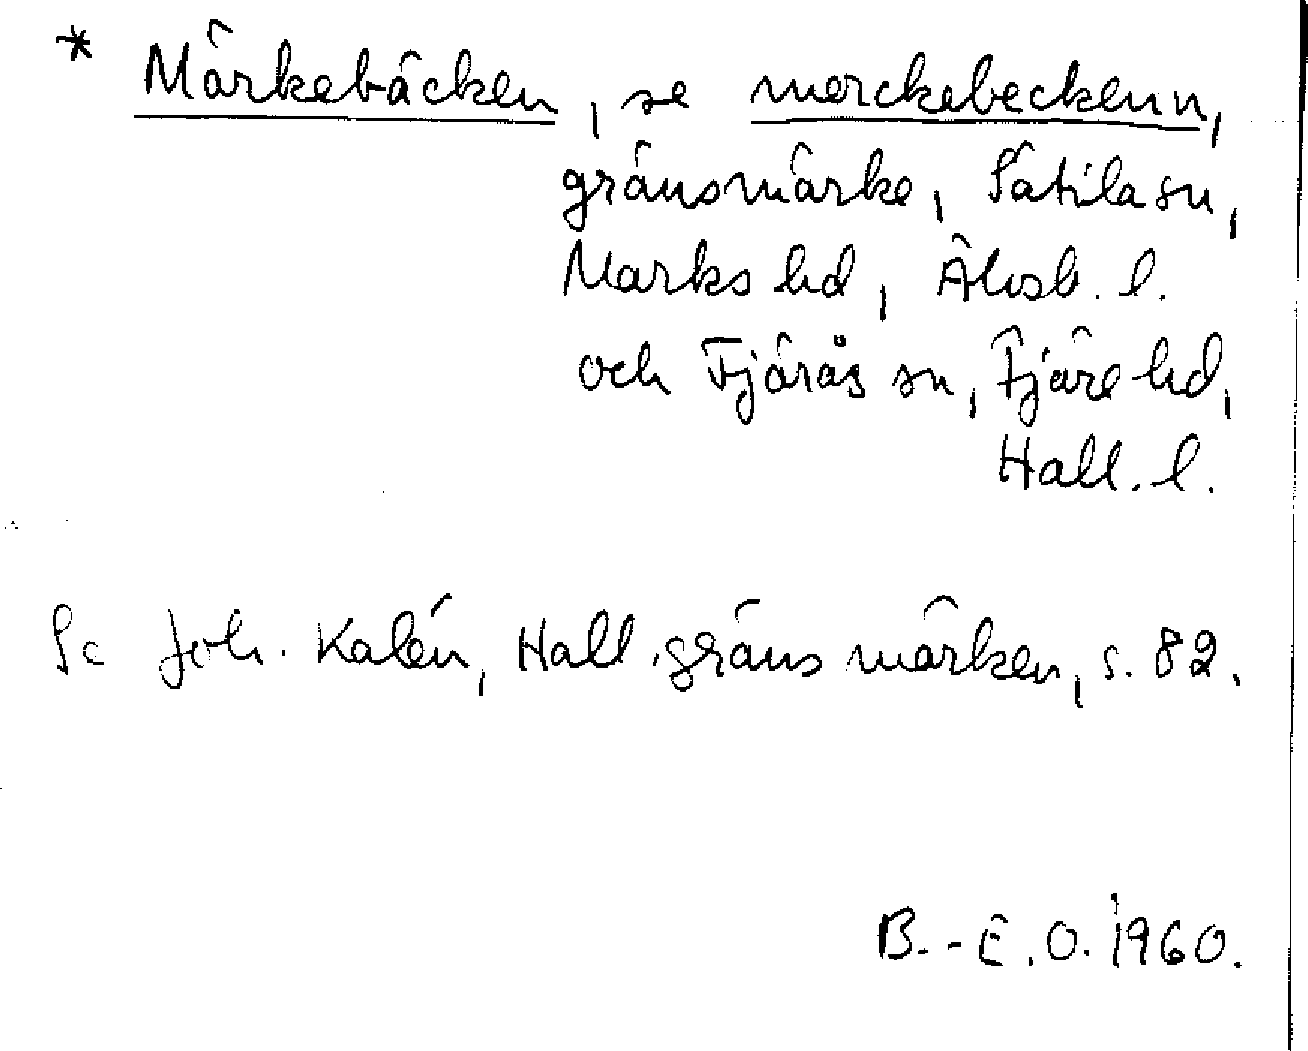 * Märkebäcken, se merckebeckenn,
gränsmärke, Sätila sn,
Marks hd, Älvsb. l.
och Fjärås sn, Fjäre hd,
Hall. l.
Se Joh. Kalén, Hall. gränsmärken, s. 82.
B.-E. O. 1960.